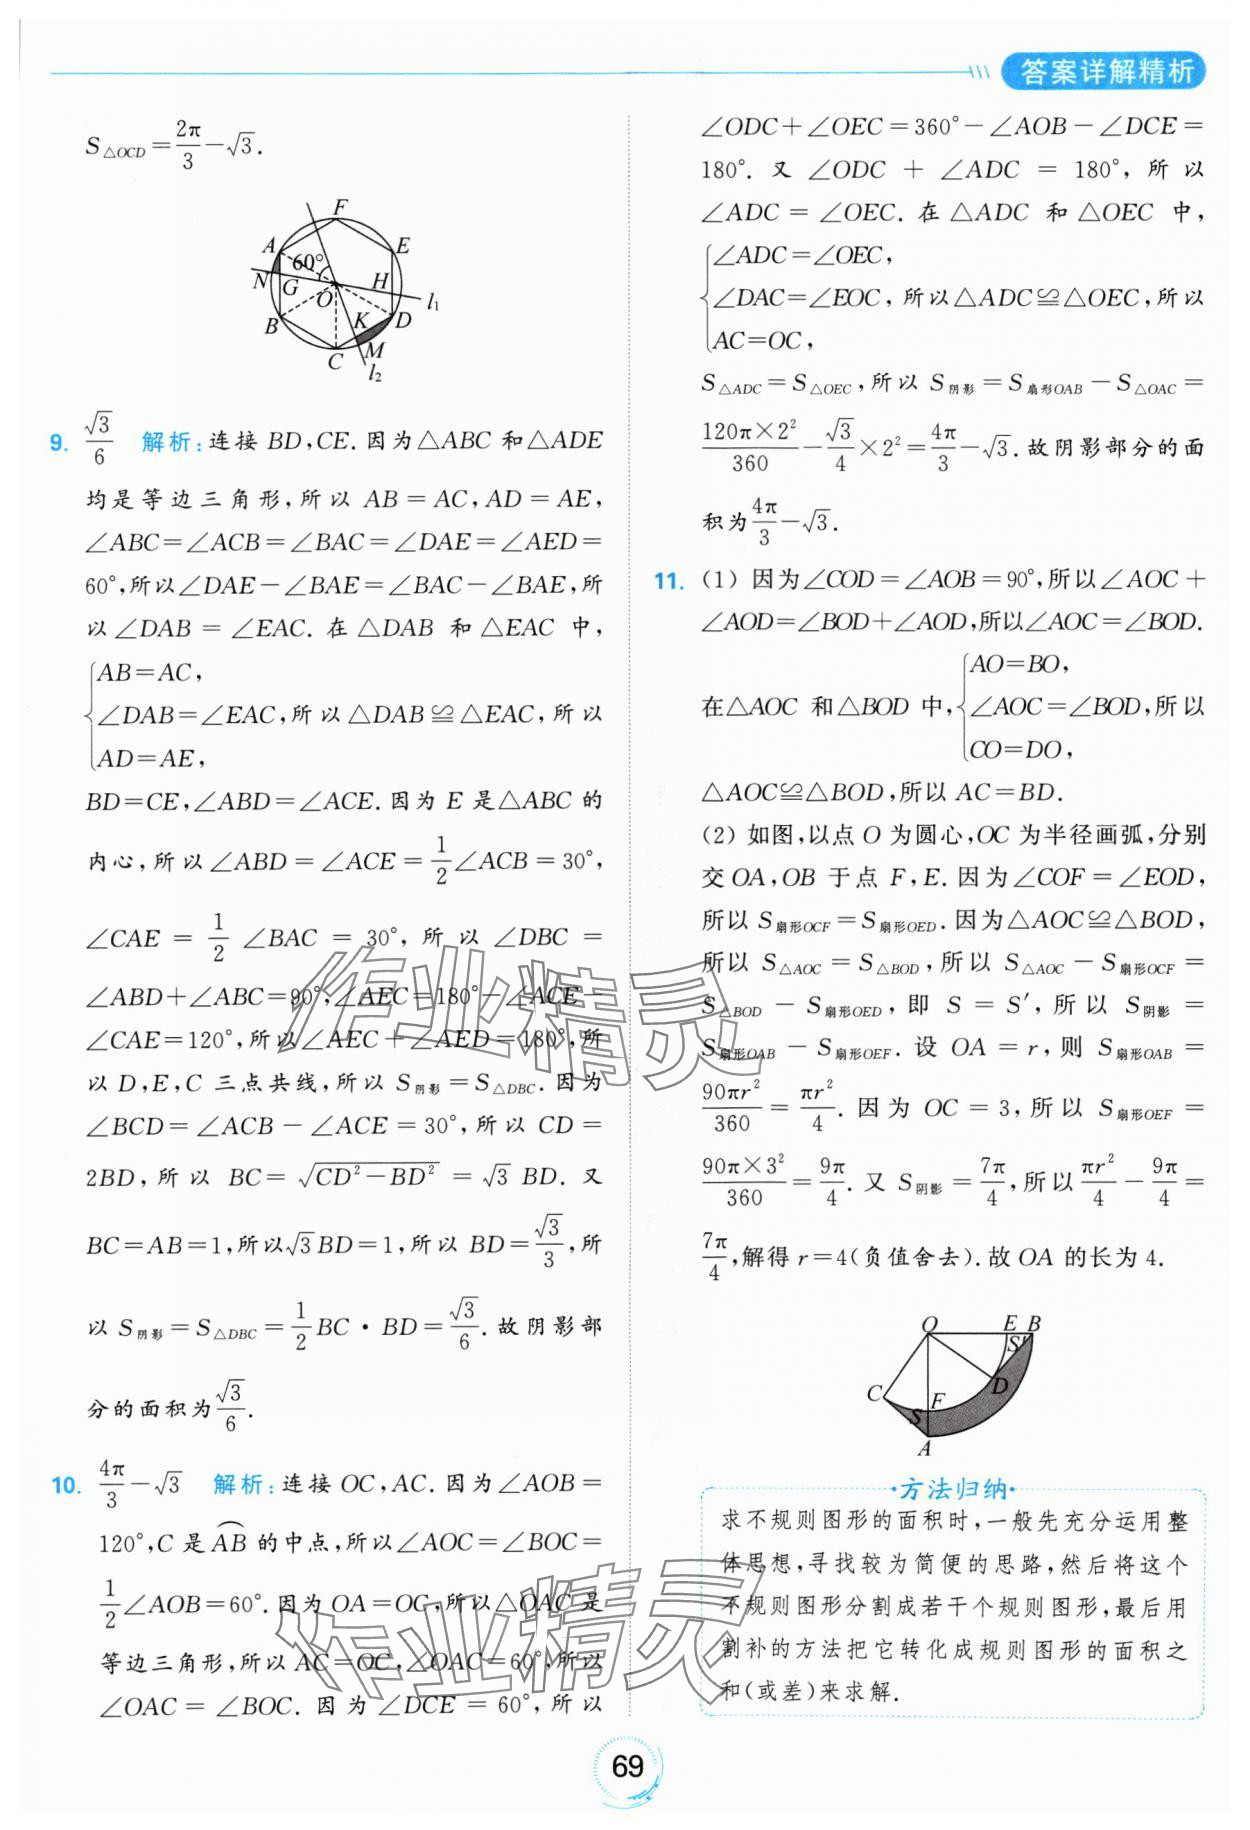 答案详解精析
S△OCD=2π/3-√3.
F
A
E
N
60°
G
O
H
l₁
B
K
D
C
M
l₂
9. √3/6 解析:连接 BD,CE.因为△ABC 和△ADE
均是等边三角形,所以 AB=AC,AD=AE,
∠ABC=∠ACB=∠BAC=∠DAE=∠AED=
60°,所以∠DAE-∠BAE=∠BAC-∠BAE,所
以∠DAB=∠EAC.在△DAB 和△EAC 中,
{AB=AC,
∠DAB=∠EAC,所以△DAB≌△EAC,所以
AD=AE,
BD=CE,∠ABD=∠ACE.因为 E 是△ABC 的
内心,所以∠ABD=∠ACE=1/2∠ACB=30°,
∠CAE=1/2∠BAC=30°,所以∠DBC=
∠ABD+∠ABC=90°,∠AEC=180°-∠ACE-
∠CAE=120°,所以∠AEC+∠AED=180°,所
以 D,E,C 三点共线,所以 S阴影=S△DBC.因为
∠BCD=∠ACB-∠ACE=30°,所以 CD=
2BD,所以 BC=√(CD²-BD²)=√3 BD.又
BC=AB=1,所以√3BD=1,所以 BD=√3/3,所
以 S阴影=S△DBC=1/2BC·BD=√3/6.故阴影部
分的面积为√3/6.
10. 4π/3-√3 解析:连接 OC,AC.因为∠AOB=
120°,C 是A͡B的中点,所以∠AOC=∠BOC=
1/2∠AOB=60°.因为 OA=OC,所以△OAC 是
等边三角形,所以 AC=OC,∠OAC=60°,所以
∠OAC=∠BOC.因为∠DCE=60°,所以
∠ODC+∠OEC=360°-∠AOB-∠DCE=
180°.又∠ODC+∠ADC=180°,所以
∠ADC=∠OEC.在△ADC 和△OEC 中,
{∠ADC=∠OEC,
∠DAC=∠EOC,所以△ADC≌△OEC,所以
AC=OC,
S△ADC=S△OEC,所以 S阴影=S扇形OAB-S△OAC=
120π×2²/360-√3/4×2²=4π/3-√3.故阴影部分的面
积为4π/3-√3.
11. (1) 因为∠COD=∠AOB=90°,所以∠AOC+
∠AOD=∠BOD+∠AOD,所以∠AOC=∠BOD.
{AO=BO,
在△AOC 和△BOD 中,∠AOC=∠BOD,所以
CO=DO,
△AOC≌△BOD,所以 AC=BD.
(2) 如图,以点 O 为圆心,OC 为半径画弧,分别
交 OA,OB 于点 F,E.因为∠COF=∠EOD,
所以 S扇形OCF=S扇形OED.因为△AOC≌△BOD,
所以 S△AOC=S△BOD,所以 S△AOC-S扇形OCF=
S△BOD-S扇形OED,即 S=S′,所以 S阴影=
S扇形OAB-S扇形OEF.设 OA=r,则 S扇形OAB=
90πr²/360=πr²/4.因为 OC=3,所以 S扇形OEF=
90π×3²/360=9π/4.又 S阴影=7π/4,所以πr²/4-9π/4=
7π/4,解得 r=4(负值舍去).故 OA 的长为 4.
O
E B
S′
C
D
F
S
A
·方法归纳·
求不规则图形的面积时,一般先充分运用整
体思想,寻找较为简便的思路,然后将这个
不规则图形分割成若干个规则图形,最后用
割补的方法把它转化成规则图形的面积之
和(或差)来求解.
作业精灵
作业精灵
69